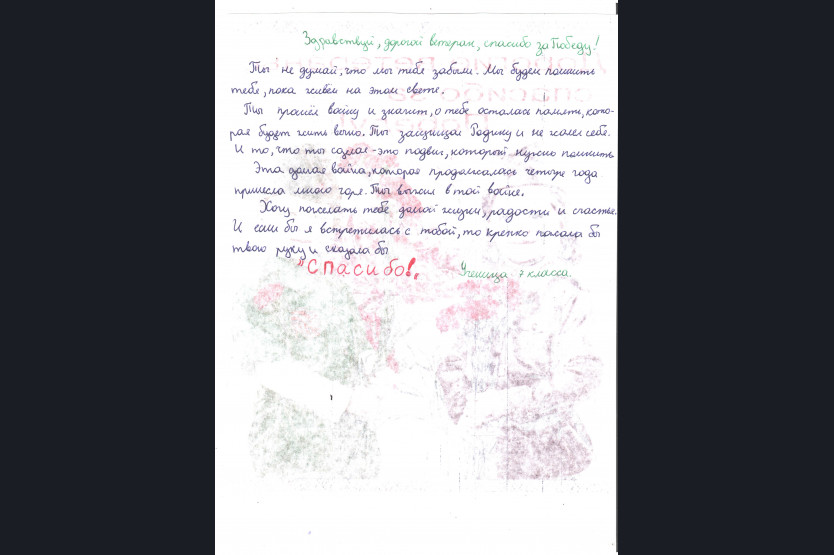 Здравствуй, дорогой ветеран, спасибо за Победу!
Ты не думай, что мы тебе забыли. Мы будем помнить
тебе, пока живём на этом свете.
Ты прошёл войну и значит, о тебе осталась память, кото-
рая будет жить вечно. Ты защищал Родину и не жалел себе.
И то, что ты сделал - это подвиг, который нужно помнить
Эта долгая война, которая продолжалась четыре года
принесла много горя. Ты выжил в той войне.
Хочу пожелать тебе долгой жизни, радости и счастье.
И если бы я встретилась с тобой, то крепко пожала бы
твою руку и сказала бы
"Спасибо!"
Ученица 7 класса.